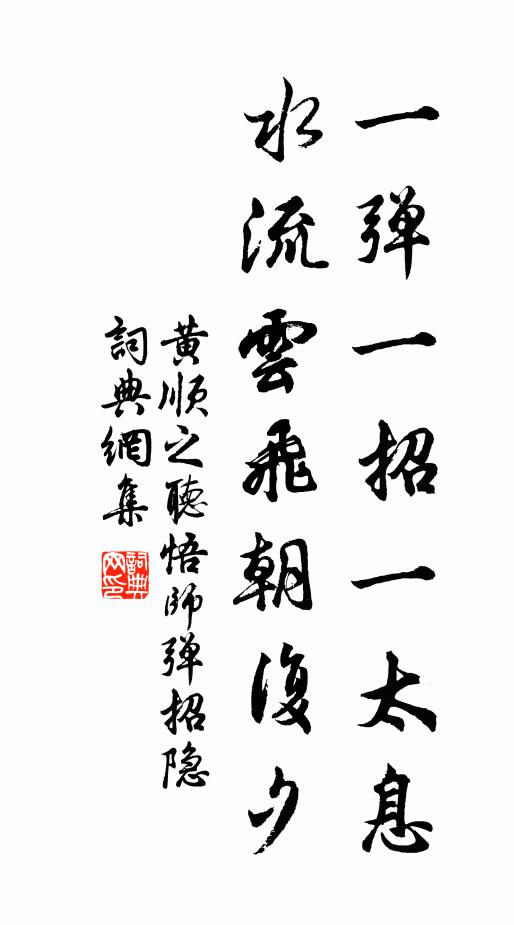 一弹一招一太息
水流雲飛朝復夕
黄順之聽悟師弹招隐
詞典網集
詞典网印